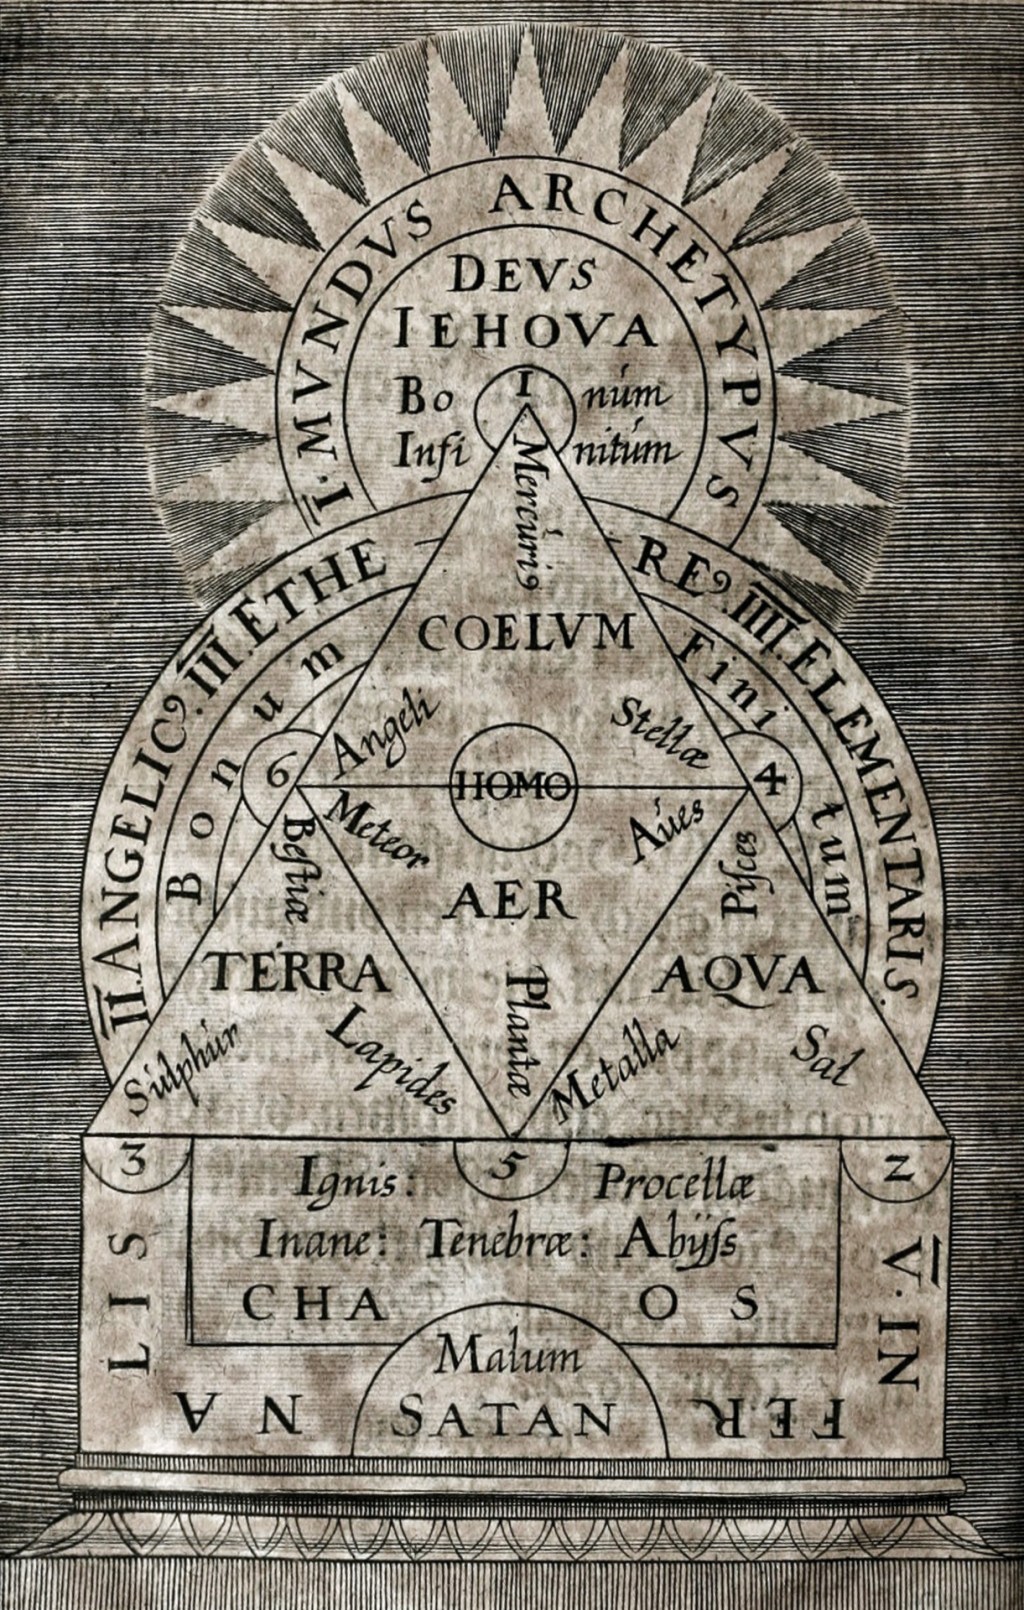 I. MVNDVS ARCHETYPVS
DEVS
IEHOVA
Bo núm
Infi nitúm
1
Mercúriꝯ
II. ANGELICꝯ. III. ETHEREꝯ. IIII. ELEMENTARIS.
Bonum Finitum
COELVM
Angeli Stellæ
6 HOMO 4
Meteor Aúes
Bestiæ Pisces
AER
TERRA AQVA
Plantæ
Súlphúr Lapides Metalla Sal
3 5 2
Ignis: Procellæ
Inane: Tenebræ: Abÿss
CHAOS
Malum
SATAN
V. INFERNALIS